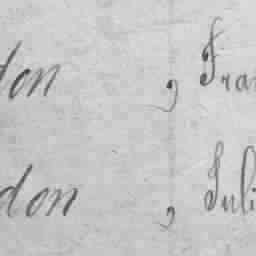 don , Fran
don , Juli